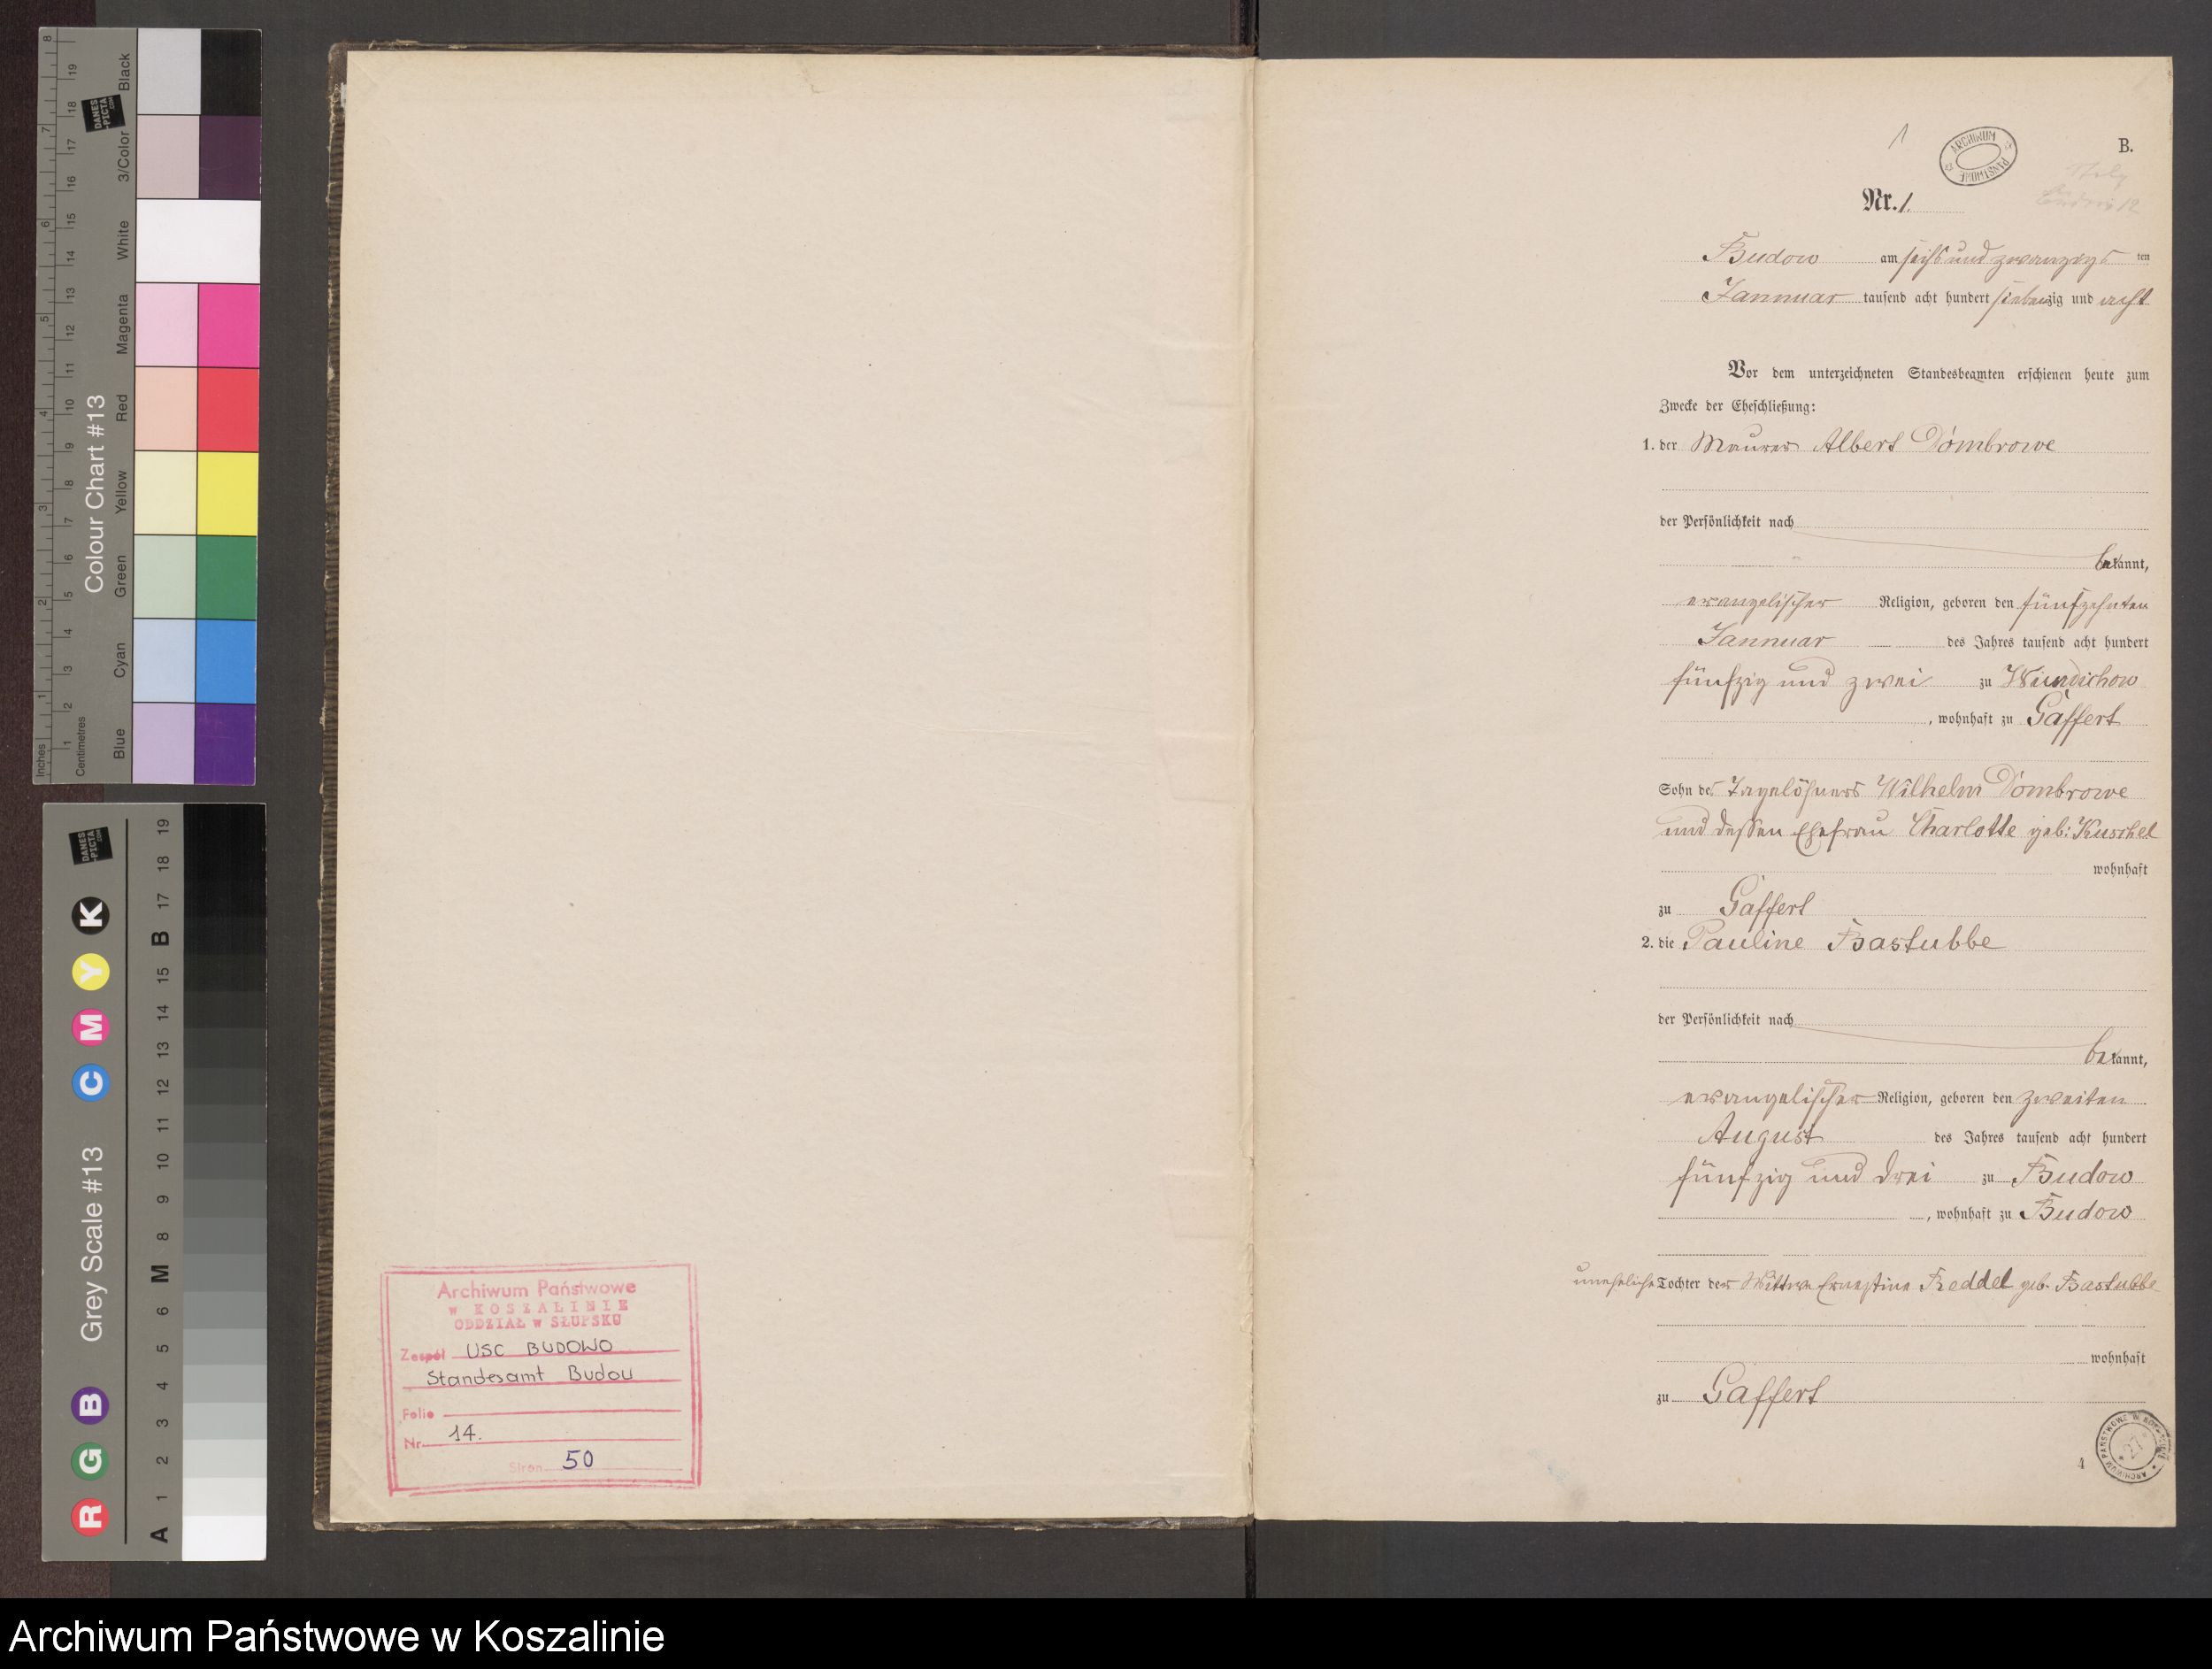 Archiwum Państwowe
w KOSZALINIE
ODDZIAŁ w SŁUPSKU
Zespół USC BUDOWO
Standesamt Budow
Folio
Nr. 14.
Stron 50
1
ARCHIWUM PAŃSTWOWE
B.
Nr. 1.
Budow am sechs und zwanzigs ten
Jannuar tausend acht hundert siebenzig und acht
Vor dem unterzeichneten Standesbeamten erschienen heute zum
Zwecke der Eheschließung:
1. der Maurer Albert Dombrowe
der Persönlichkeit nach
bekannt,
evangelischer Religion, geboren den fünfzehnten
Jannuar des Jahres tausend acht hundert
fünfzig und zwei zu Wundichow
, wohnhaft zu Gaffert
Sohn des Tagelöhners Wilhelm Dombrowe
und dessen Ehefrau Charlotte geb: Kuschel
wohnhaft
zu Gaffert
2. die Pauline Bastubbe
der Persönlichkeit nach
bekannt,
evangelischer Religion, geboren den zweiten
August des Jahres tausend acht hundert
fünfzig und drei zu Budow
, wohnhaft zu Budow
uneheliche Tochter der Wittwe Ernestine Reddel geb. Bastubbe
wohnhaft
zu Gaffert
4
27
Colour Chart #13
Black
3/Color
White
Magenta
Red
Yellow
Green
Cyan
Blue
Inches
Centimetres
DANES-PICTA.COM
Grey Scale #13
R G B C M Y K
A 1 2 3 4 5 6 M 8 9 10 11 12 13 14 15 B 17 18 19
Archiwum Państwowe w Koszalinie